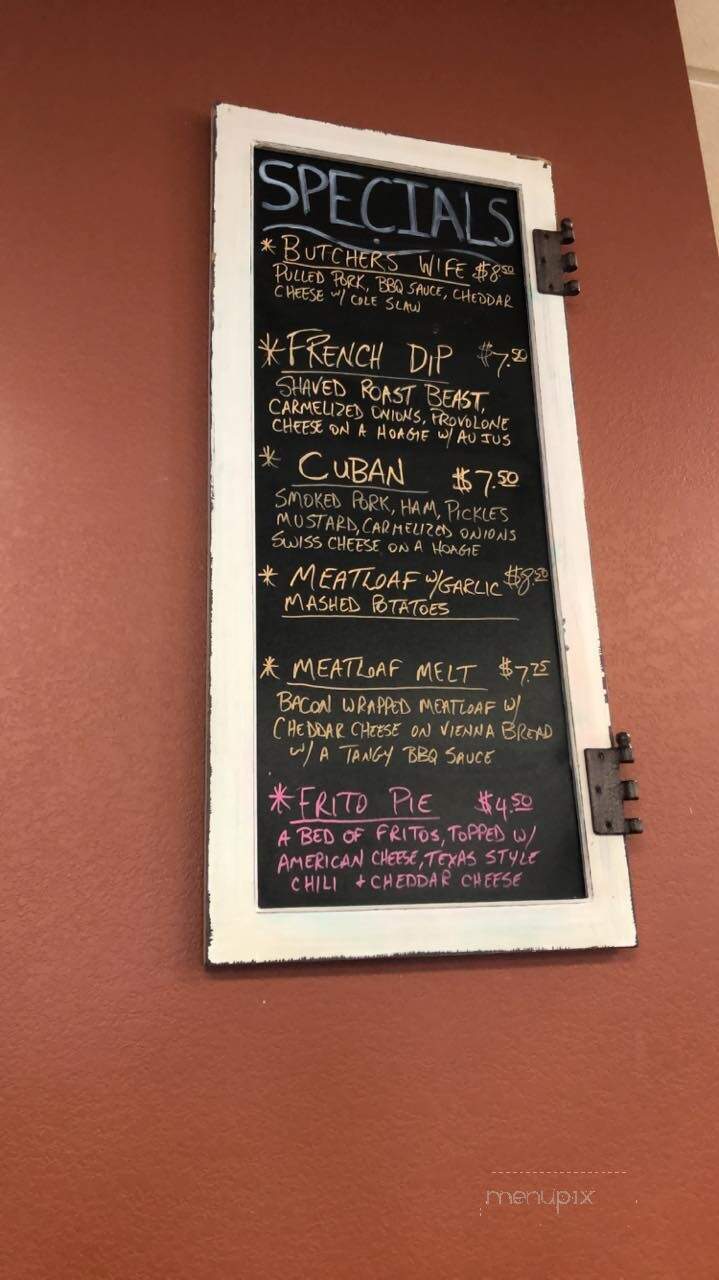 SPECIALS
* BUTCHERS WIFE $8.50
PULLED PORK, BBQ SAUCE, CHEDDAR
CHEESE W/ COLE SLAW
* FRENCH DIP $7.50
SHAVED ROAST BEAST,
CARMELIZED ONIONS, PROVOLONE
CHEESE ON A HOAGIE W/ AU JUS
* CUBAN $7.50
SMOKED PORK, HAM, PICKLES
MUSTARD, CARMELIZED ONIONS
SWISS CHEESE ON A HOAGIE
* MEATLOAF W/GARLIC $8.50
MASHED POTATOES
* MEATLOAF MELT $7.75
BACON WRAPPED MEATLOAF W/
CHEDDAR CHEESE ON VIENNA BREAD
W/ A TANGY BBQ SAUCE
* FRITO PIE $4.50
A BED OF FRITOS, TOPPED W/
AMERICAN CHEESE, TEXAS STYLE
CHILI + CHEDDAR CHEESE
menupix